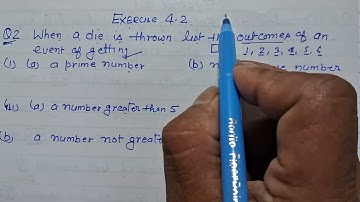 Exercise 4.2
Q2 When a die is thrown list the outcomes of an
event of getting 1, 2, 3, 4, 5, 6
(i) (a) a prime number (b) number
(ii) (a) a number greater then 5
(b) a number not greater